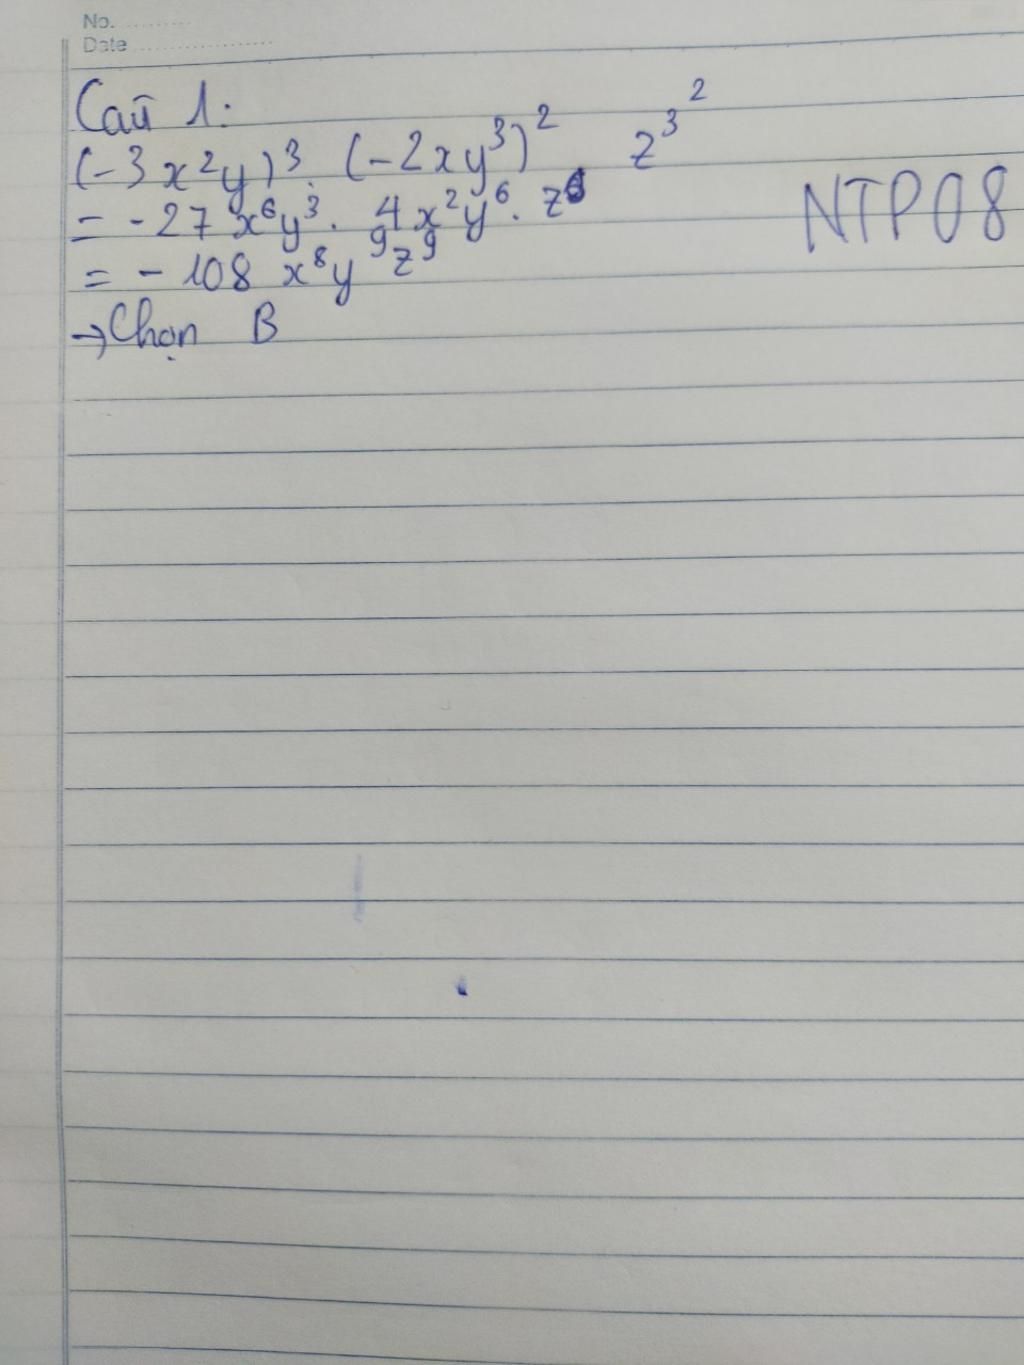 No.
Date
Câu 1:
(-3x²y)³. (-2xy³)² z³²
= -27 x⁶y³. 4x²y⁶. z⁶
= - 108 x⁸y⁹z⁹
→ Chọn B
NTP08